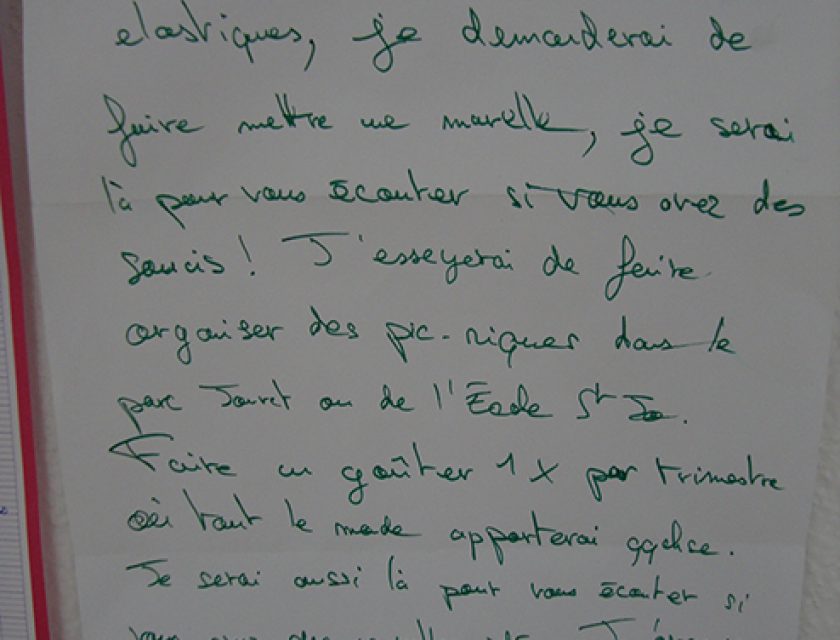 elastiques, je demanderai de
faire mettre une marelle, je serai
là pour vous écouter si vous avez des
soucis! J'esseyerai de faire
organiser des pic-niques dans le
parc Jouret ou de l'École St Jo.
Faire un goûter 1 X par trimestre
où tout le monde apporterai qqchse.
Je serai aussi là pour vous écouter si
vous avez des